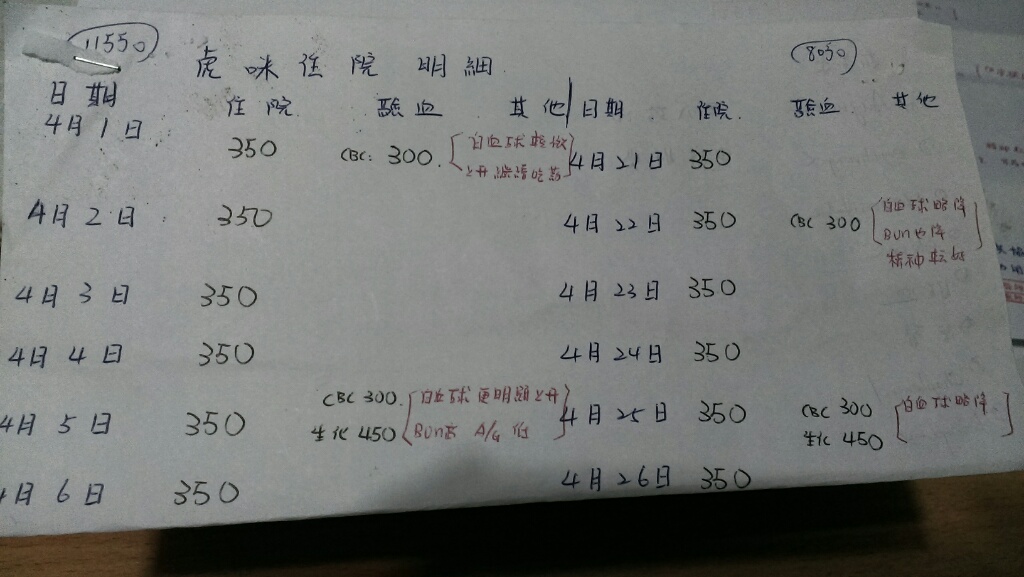 11550
8050
虎咪住院明細
日期 住院 驗血 其他 日期 住院 驗血 其他
4月1日 350 CBC: 300. 白血球輕微
上升 繼續吃藥
4月21日 350
4月2日 350
4月22日 350 CBC 300 白血球略降
BUN也降
精神転好
4月3日 350
4月23日 350
4月4日 350
4月24日 350
4月5日 350 CBC 300. 白血球更明顯上升
生化 450 BUN高 A/G低
4月25日 350 CBC 300 白血球略降
生化 450
4月6日 350
4月26日 350